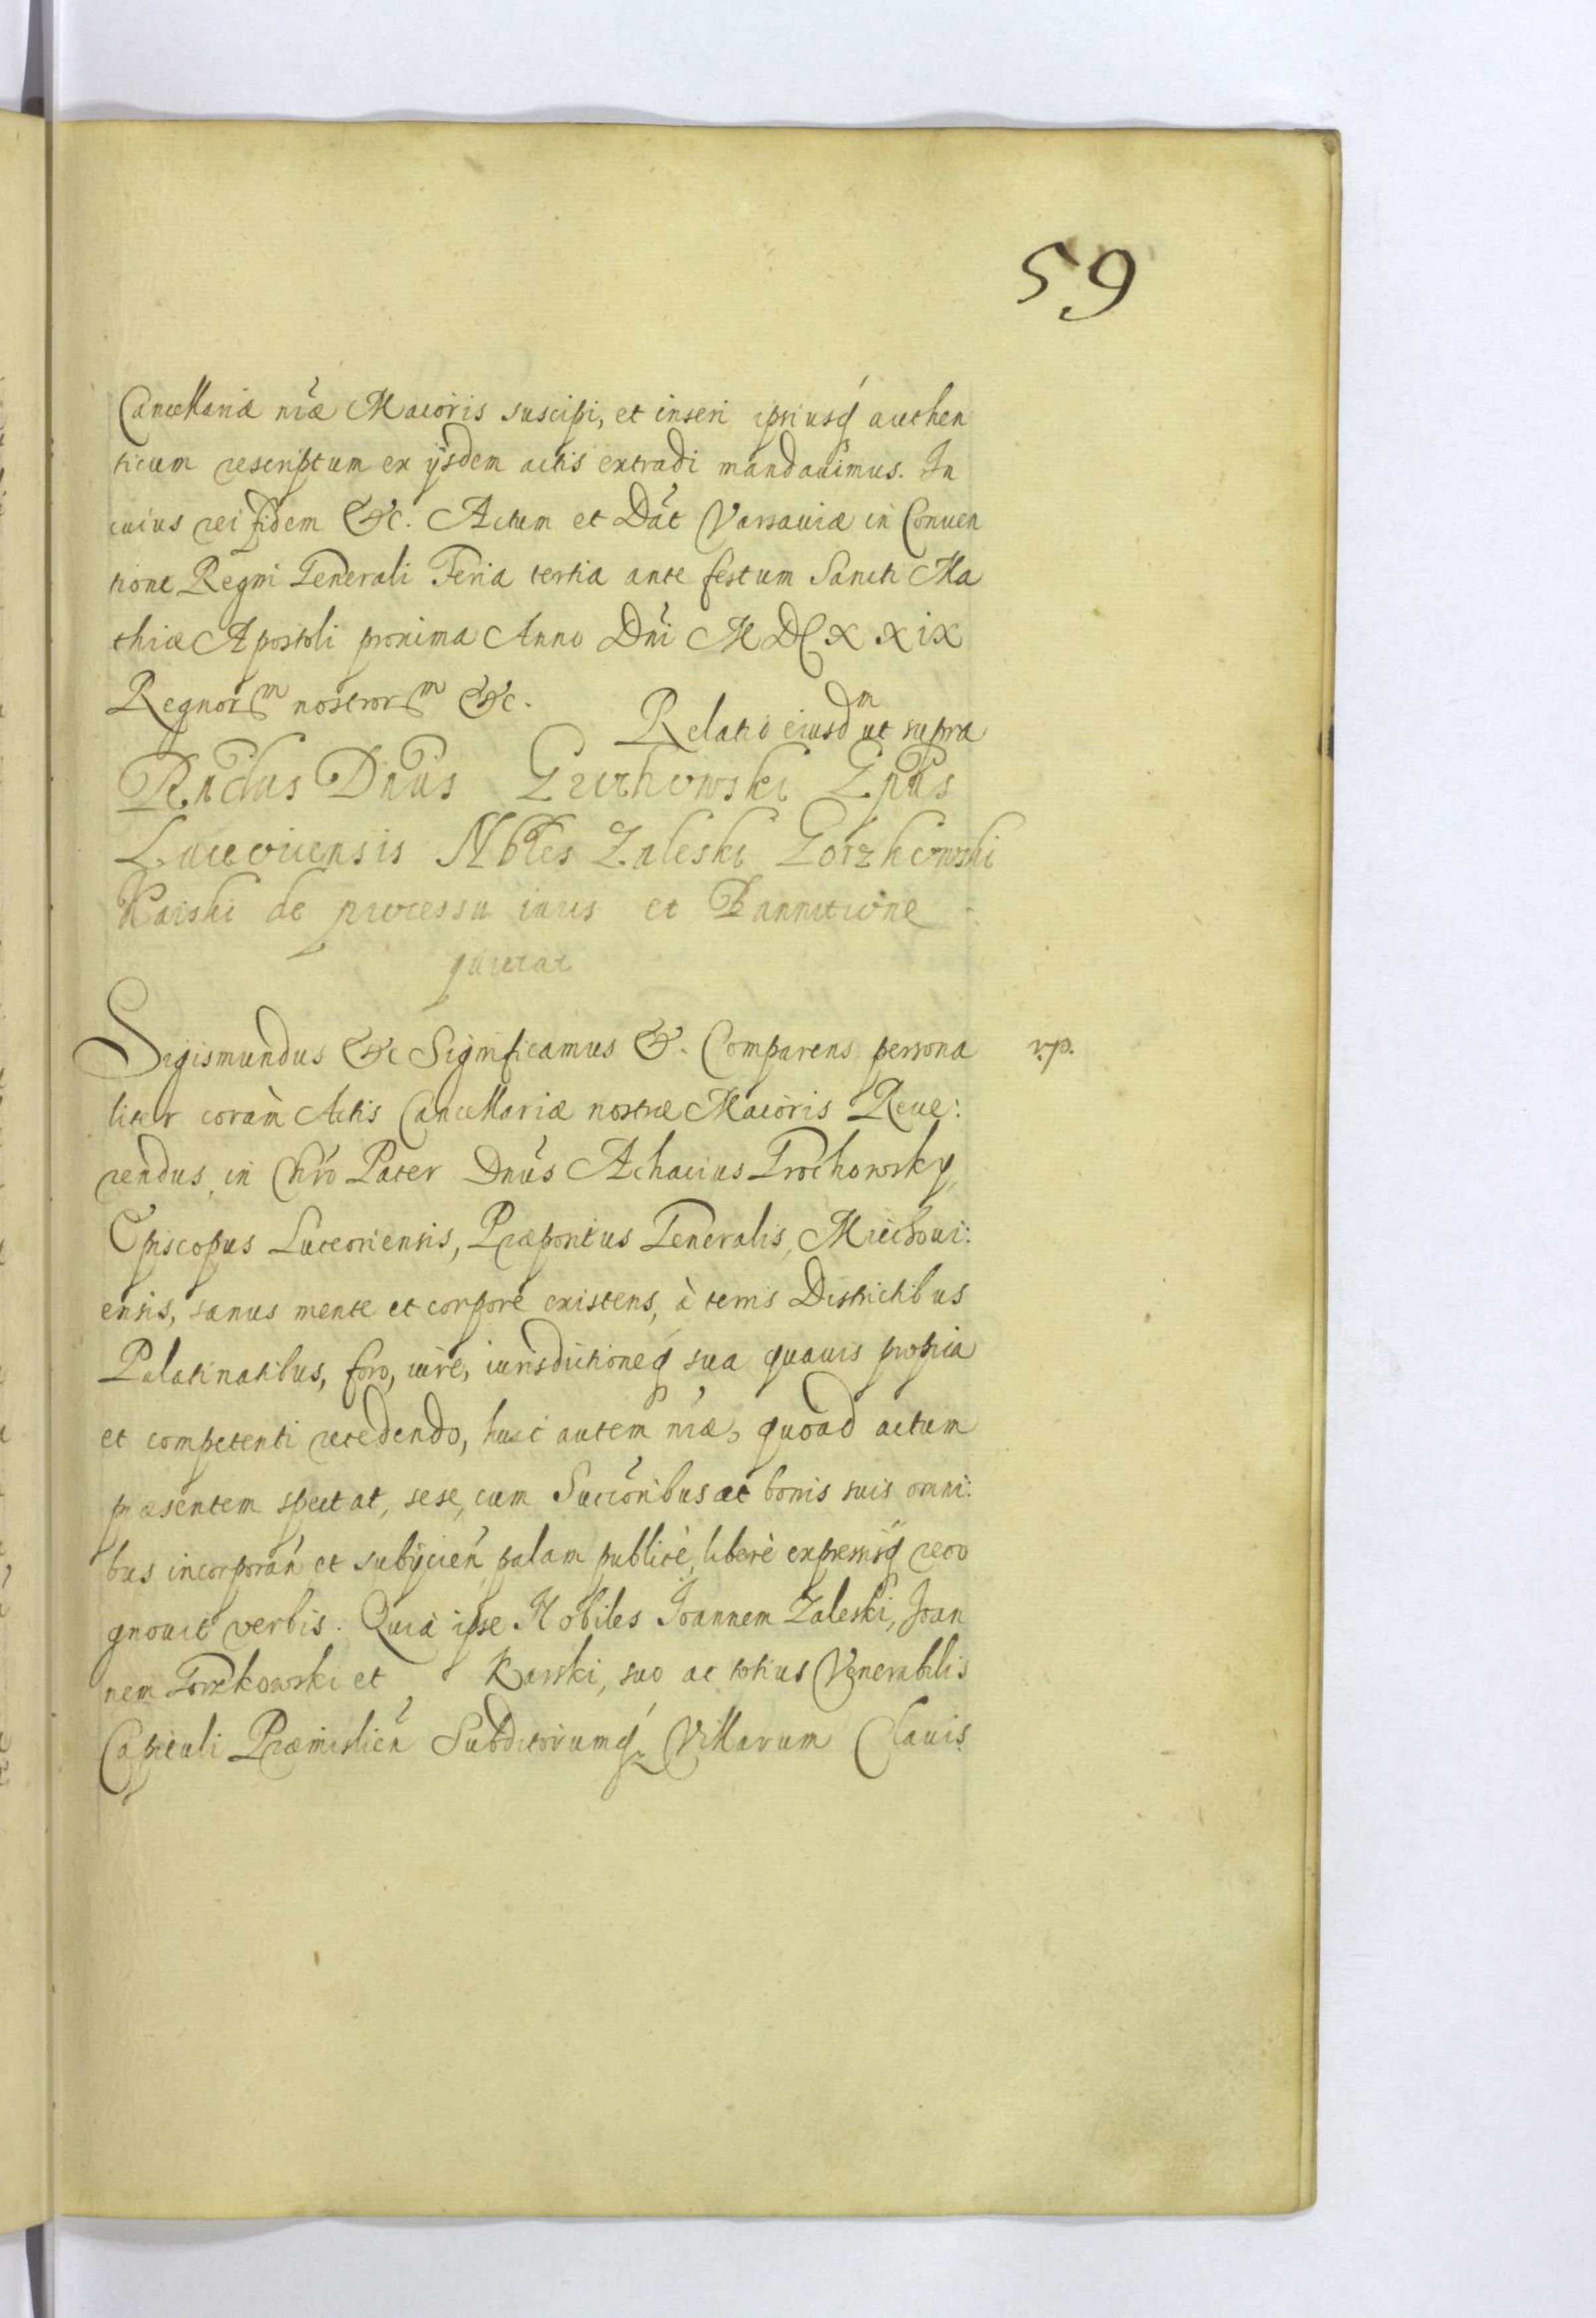 59
Cancellariæ nr̃æ Maioris suscipi, et inseri ipsiusq́ authen
ticum rescriptum ex ijsdem actis extradi mandauimus. In
cuius rei fidem &c. Actum et Dat̃ Varsauiæ in Conuen
tione Regni Generali Feria tertia ante festum Sancti Ma
thiæ Apostoli proxima Anno Dñi MDCXXIX
Regnorm nostrorm &c.
Relatio eiusdm ut supra
Rndus Dnus Grochowski Epus
Luceoriensis Nbles Zaleski Gorzkowski
Karski de processu iuris et Bannitione
quietat
Sigismundus &c Significamus &. Comparens persona
liter coràm Actis Cancellariæ nostræ Maioris Reue:
rendus in Chrõ Pater Dnũs Achacius Grochowsky,
Episcopus Luceoriensis, Præpositus Generalis, Miechoui:
ensis, sanus mente et corpore existens, à terris Districtibus
Palatinatibus, foro, iure, iurisdictioneq́ sua quauis propria
et competenti recedendo, huic autem nr̃æ, quoad actum
præsentem spectat, sese, cum Succoribus ac bonis suis omni:
bus incorporañ et subijcieñ palam publicè, liberè expressisq́ reco
gnouit verbis. Quia ipse Nobiles Joannem Zaleski, Joan
nem Gorzkowski et Karski, suo ac totius Venerabilis
Capituli Præmislień Subditorumq́ Villarum Clauis